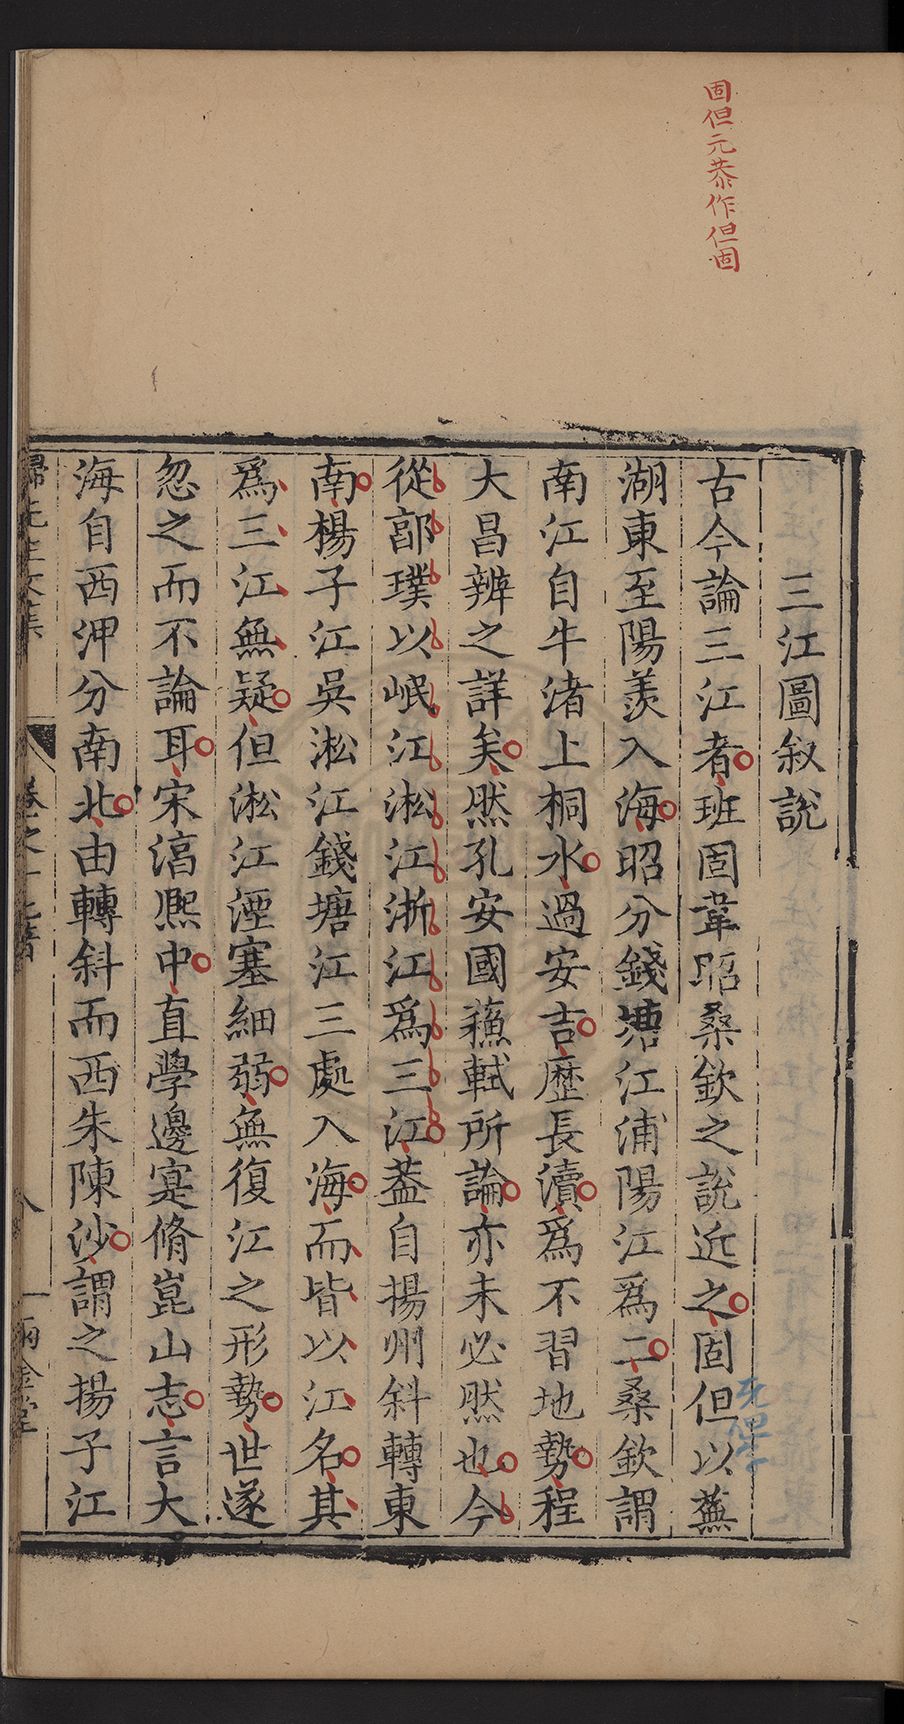 固但元恭作但固
三江圖叙說
古今論三江者班固韋昭桑欽之說近之固但以蕪
湖東至陽羡入海昭分錢塘江浦陽江爲二桑欽謂
南江自牛渚上桐水過安吉歷長瀆爲不習地勢程
大昌辨之詳矣然孔安國蘓軾所論亦未必然也今
從郭璞以岷江淞江浙江爲三江葢自揚州斜轉東
南楊子江吳淞江錢塘江三處入海而皆以江名其
爲三江無疑但淞江湮塞細弱無復江之形勢世遂
忽之而不論耳宋淳熙中直學邊寔脩崑山志言大
海自西㳌分南北由轉斜而西朱陳沙謂之揚子江